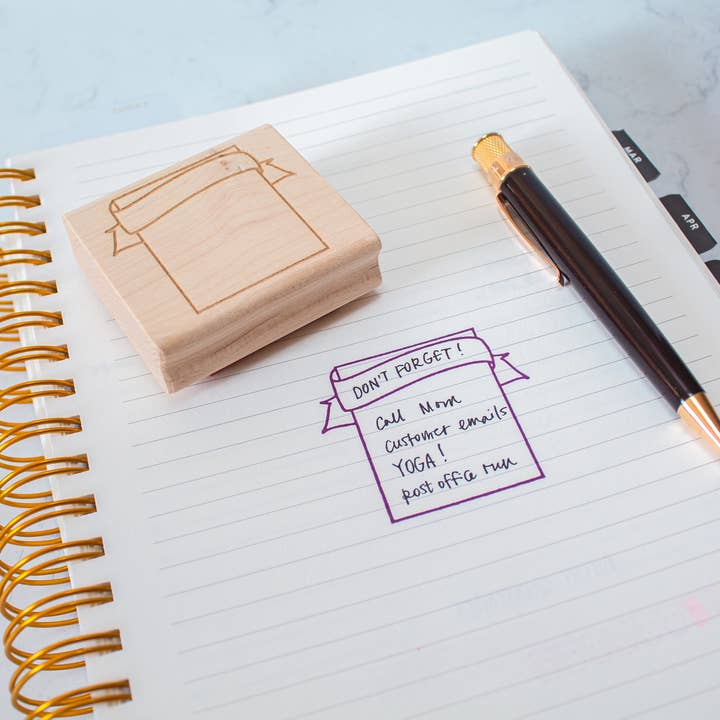 MAR
APR
DON'T FORGET!
Call Mom
customer emails
YOGA!
post office run